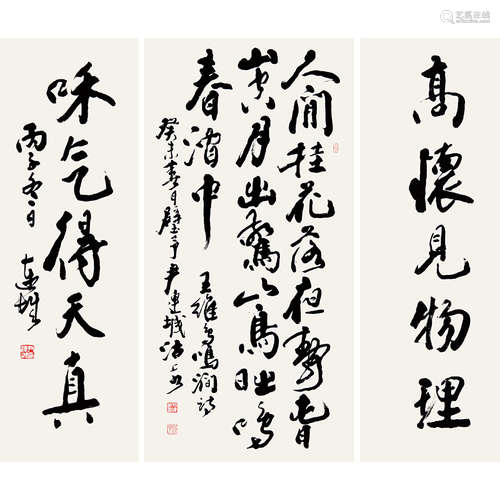 高懷見物理
人閒桂花落夜靜春
山空月出驚山鳥時鳴
春澗中
王維鳥鳴澗詩
癸未春日
尹連城
咊气得天真
丙子冬日
連城